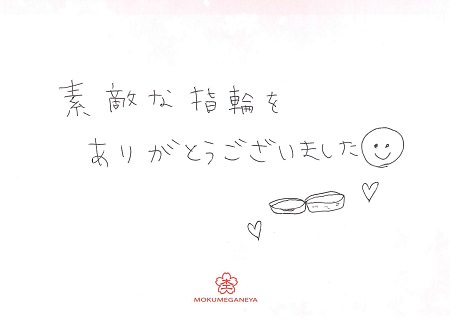 素敵な指輪を
ありがとうございました
MOKUMEGANEYA